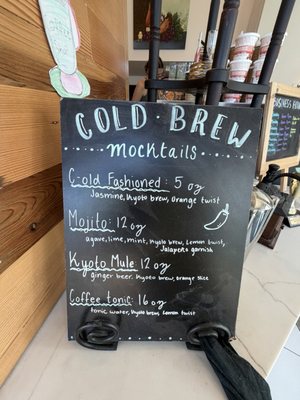 COLD · BREW
mocktails
Cold Fashioned: 5 oz
Jasmine, Kyoto brew, orange twist
Mojito: 12 oz
agave, lime, mint, Kyoto brew, Lemon twist,
Jalapeño garnish
Kyoto Mule: 12 oz
ginger beer, Kyoto brew, orange slice
Coffee tonic: 16 oz
tonic water, Kyoto brew, Lemon twist
BUSINESS